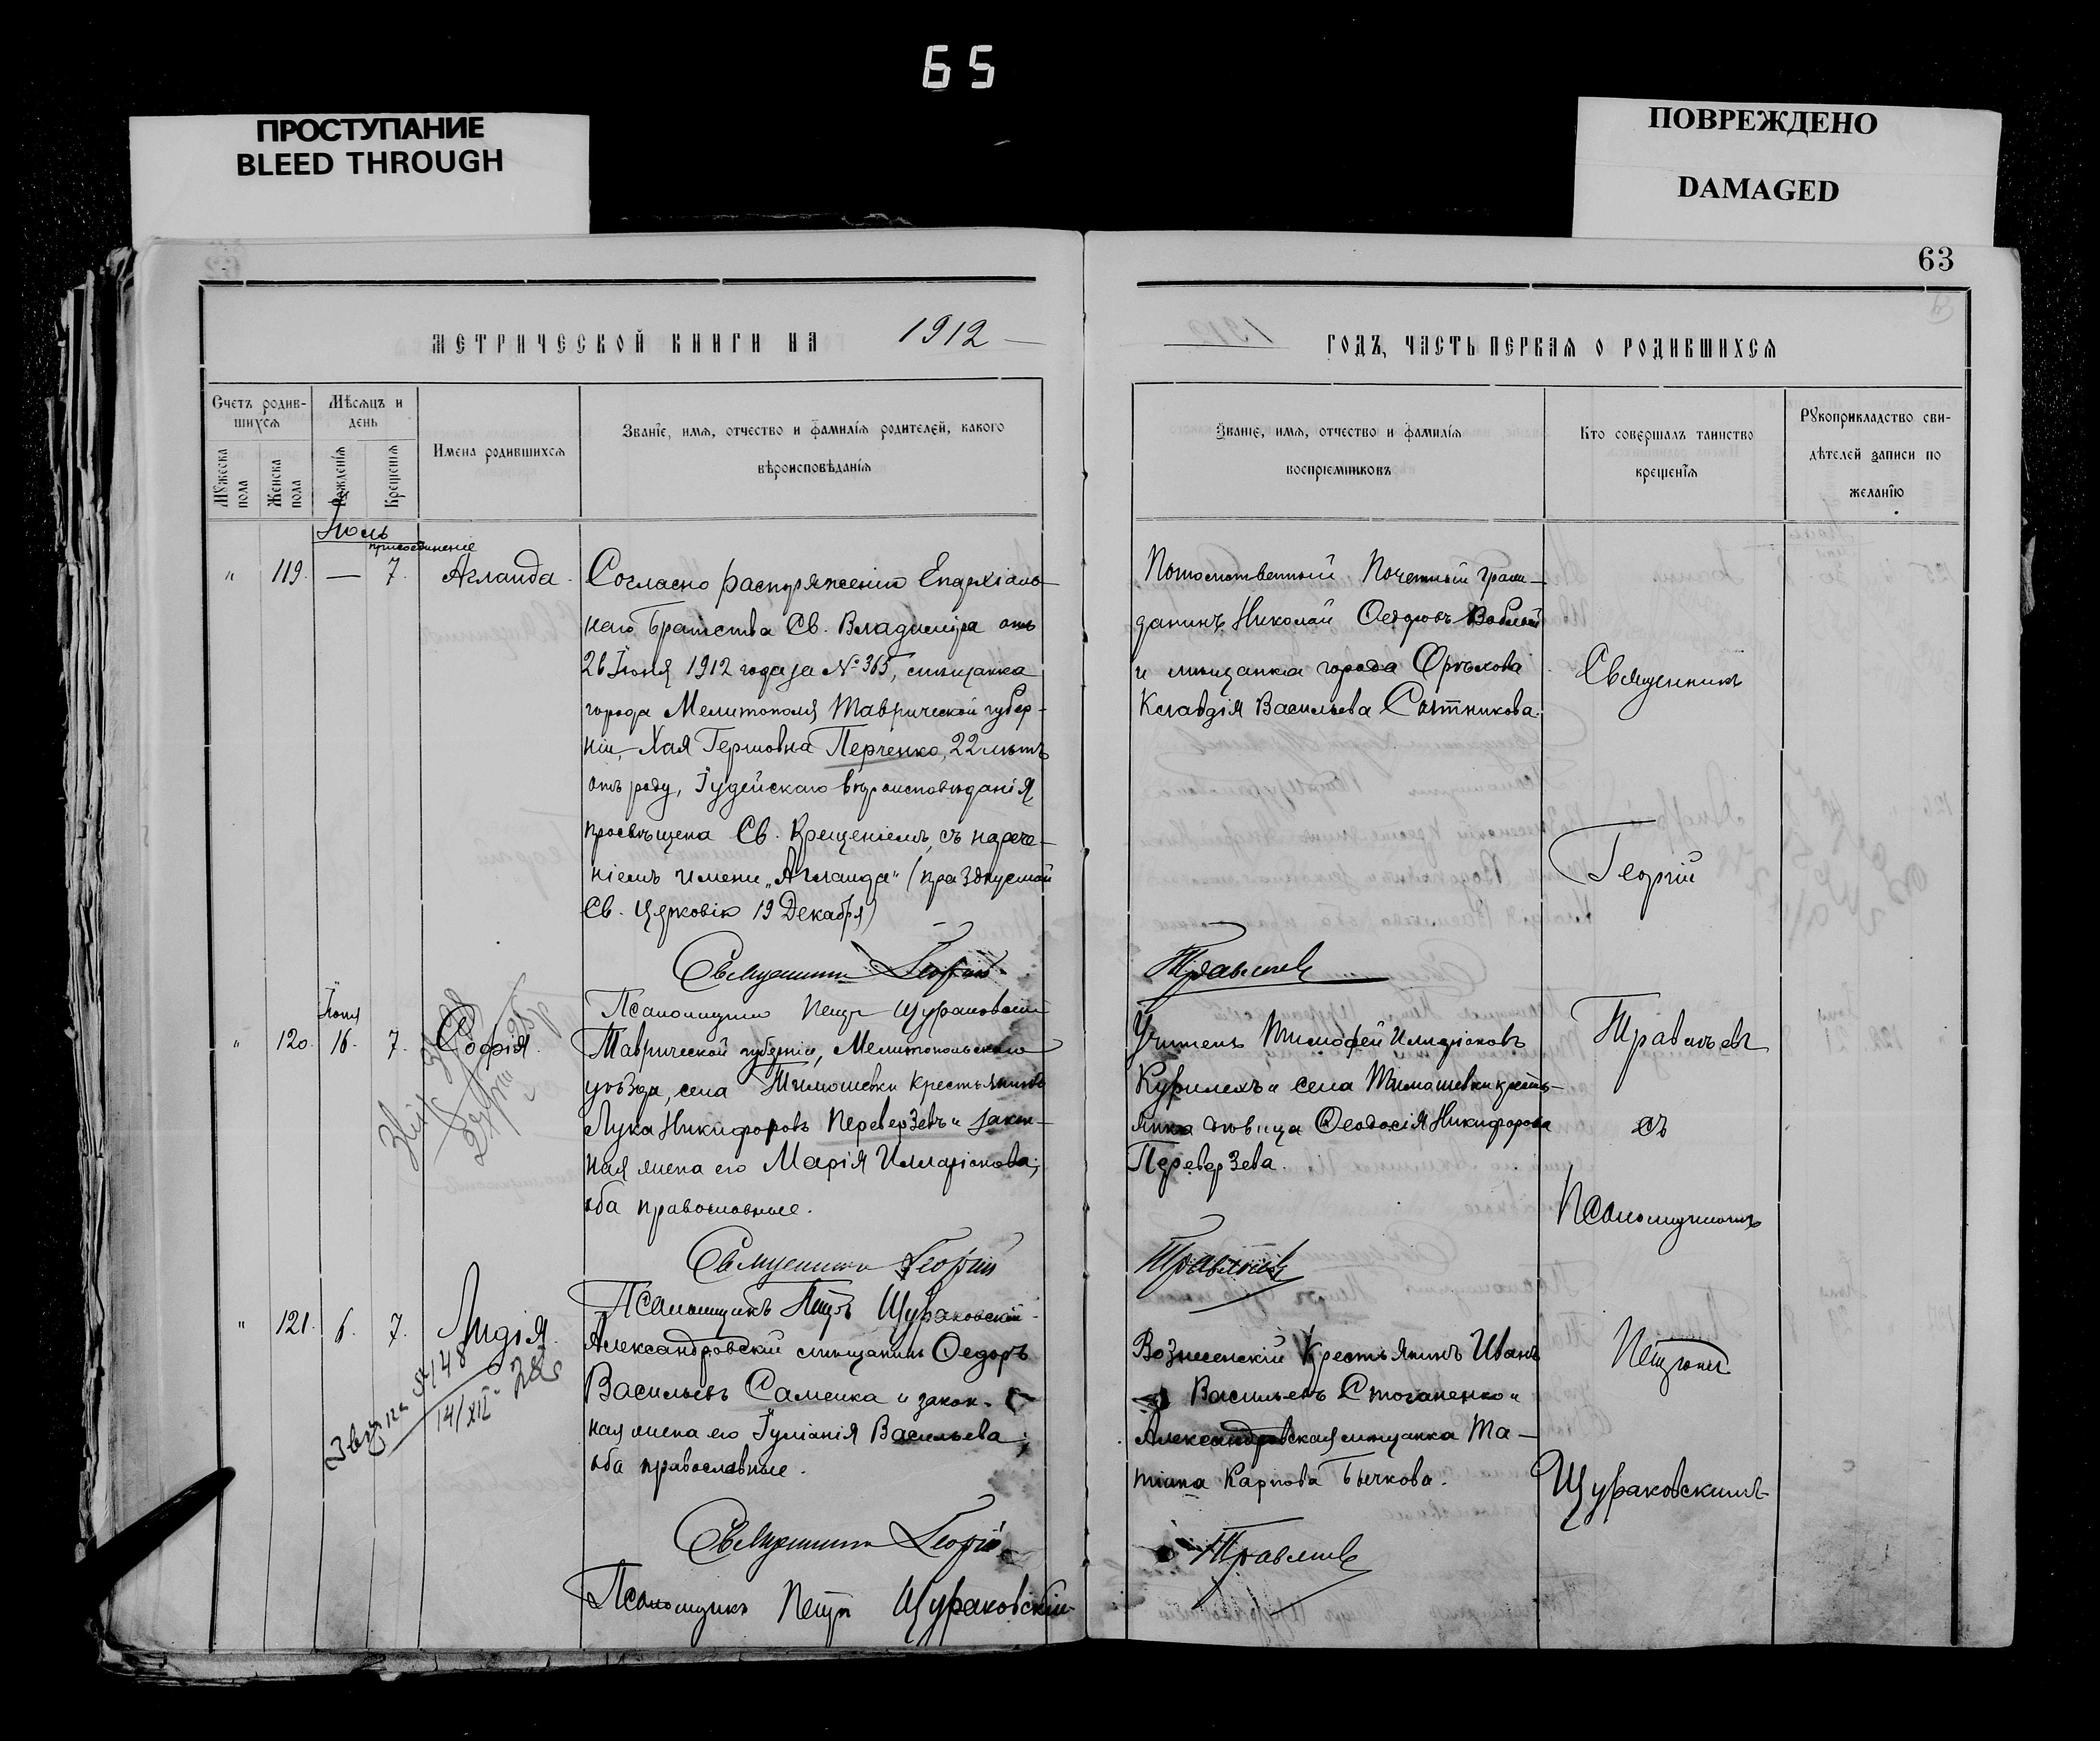 65
ПРОСТУПАНИЕ
BLEED THROUGH
ПОВРЕЖДЕНО
DAMAGED
63
МЕТРИЧЕСКОЙ КНИГИ НА 1912
ГОДЪ, ЧАСТЬ ПЕРВАЯ О РОДИВШИХСЯ
Счетъ родив-
шихся
Мужеска пола
Женска пола
Мѣсяцъ и
день
Рожденія
Крещенія
Имена родившихся
Званіе, имя, отчество и фамилія родителей, какого
вѣроисповѣданія
Званіе, имя, отчество и фамилія
воспріемниковъ
Кто совершалъ таинство
крещенія
Рукоприкладство сви-
дѣтелей записи по
желанію
Іюль
присоединеніе
" 119. — 7. Аглаида.
Согласно распоряженію Епархіаль-
наго Братства Св. Владиміра отъ
26 Іюня 1912 года за № 365, мѣщанка
города Мелитополя Таврической губер-
ніи, Хая Гершовна Перченко, 22 лѣтъ
отъ роду, Іудейскаго вѣроисповѣданія,
просвѣщена Св. Крещеніемъ, съ нарече-
ніемъ имени „Аглаида" (празднуемой
Св. Церковію 19 Декабря)
Священникъ Георгій
Псаломщикъ Петръ Щураковскій
Потомственный Почетный Граж-
данинъ Николай Ѳедоровъ
и мѣщанка города Орѣхова
Клавдія Васильева Сытникова.
Травлѣевъ
Священникъ
Георгій
Травлѣевъ
съ
Псаломщикомъ
Петромъ
Щураковскимъ
Іюня
" 120. 16. 7. София.
Таврической губерніи, Мелитопольскаго
уѣзда, села Тимошевки крестьянинъ
Лука Никифоровъ Переверзевъ и закон-
ная жена его Марія Илларіонова;
оба православные.
Священникъ Георгій
Псаломщикъ Петръ Щураковскій
Учитель Тимофей Илларіоновъ
Курилехъ и села Тимошевки кресть-
янка дѣвица Ѳеодосія Никифорова
Переверзева.
Травлѣевъ
" 121. 6. 7. Лидія.
№ 148
14/XII
Александровскій мѣщанинъ Ѳедоръ
Васильевъ Саменка и закон-
ная жена его Іуліанія Васильева;
оба православные.
Священникъ Георгій
Псаломщикъ Петръ Щураковскій
Вознесенскій Крестьянинъ Иванъ
Васильевъ Стоганенко и
Александровская мѣщанка Та-
тіана Карпова Бычкова.
Травлѣевъ